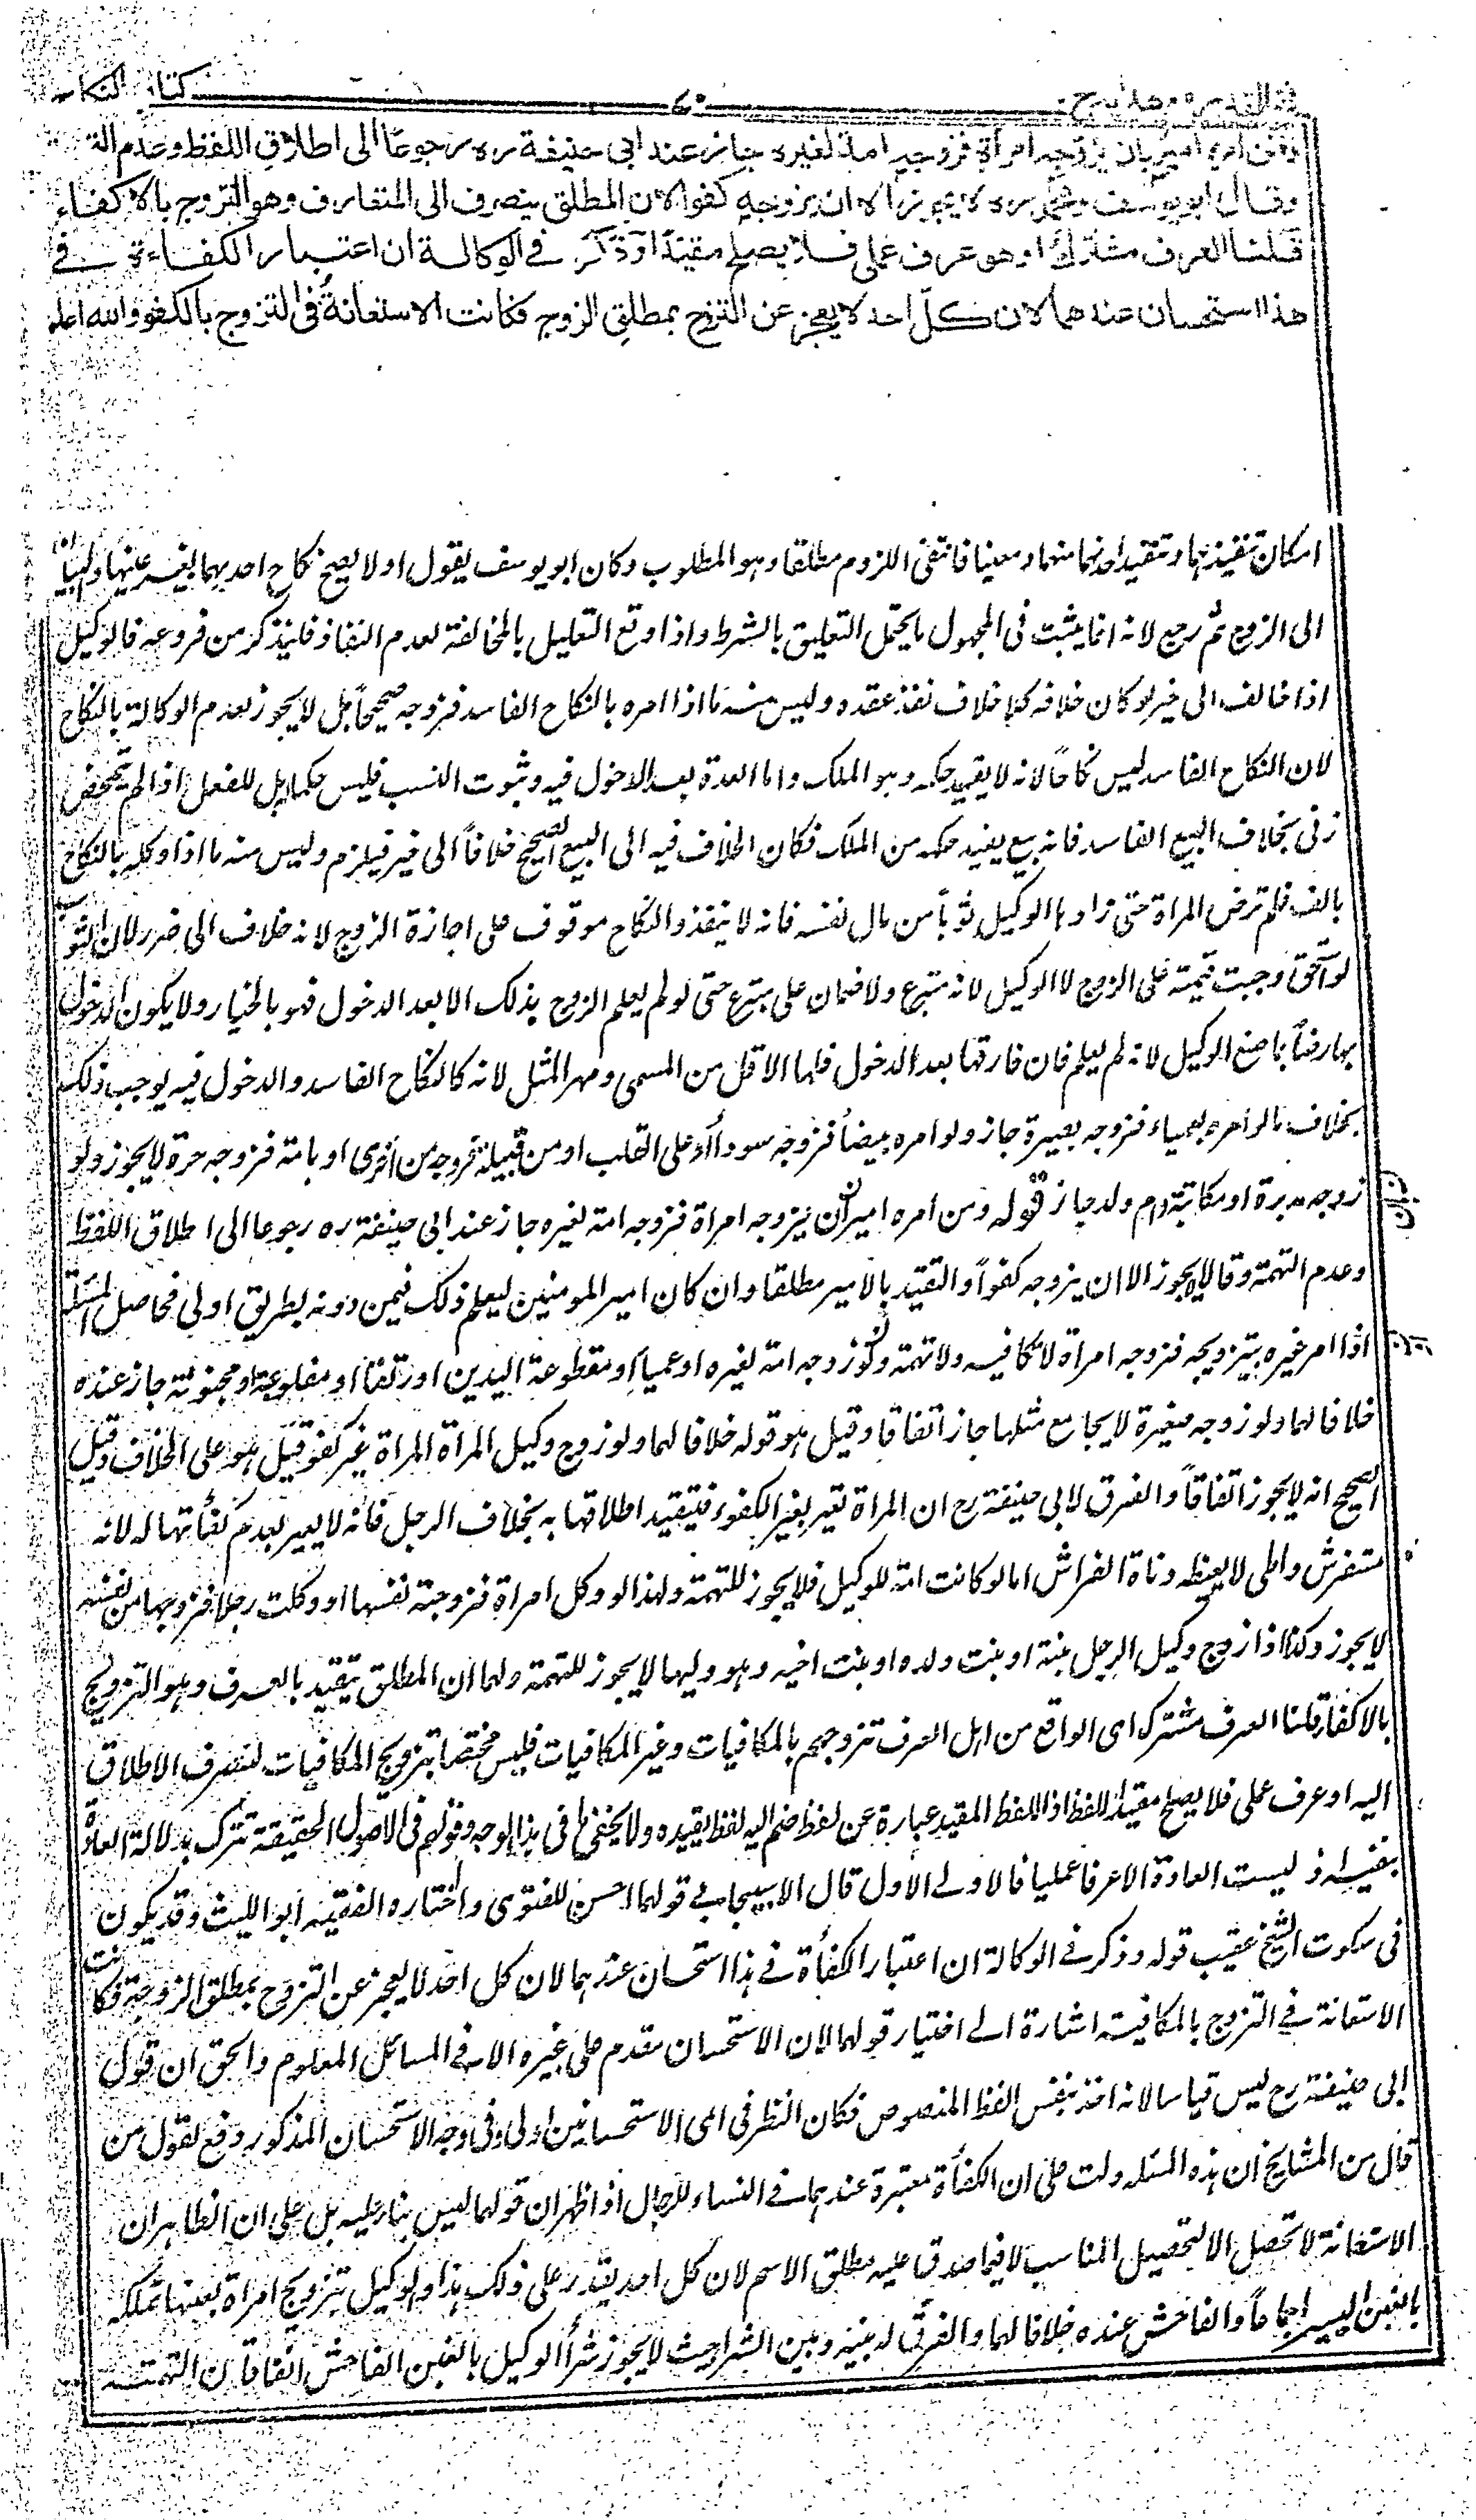 فتح القدير مع هداية ج
كتاب النكاح
ومن امره امير بان يزوجه امرأة فزوجه امة لغيره جاز عند ابي حنيفة ره رجوعا الى اطلاق اللفظ وعدم التهمة
وقال ابو يوسف ومحمد ره لا يجوز الا ان يزوجه كفوا لان المطلق يتصرف الى المتعارف وهو التزوج بالاكفاء
قلنا العرف مشترك او هو عرف عملي فلا يصلح مقيدا وذكر في الوكالة ان اعتبار الكفاءة في
هذا استحسان عندهما لان كل احد لا يعجز عن التزوج بمطلق الزوج فكانت الاستعانة في التزوج بالكفو والله اعلم
امكان تنفيذهما وتنفيذ احدهما منهما ومعينا فانتفى اللزوم مطلقا وهو المطلوب وكان ابو يوسف يقول اولا يصح نكاح احديهما بغير عينها والبيان
الى الزوج ثم رجع لانه انما يثبت في المجهول ما يحتمل التعليق بالشرط واذا وقع التعليل بالمخالفة لعدم النفاذ فلنذكر من فروعه فالوكيل
اذا خالف الى خير او كان خلافه كلا خلاف نفذ عقده وليس منه ما اذا امره بالنكاح الفاسد فزوجه صحيحا بل لا يجوز لعدم الوكالة بالنكاح
لان النكاح الفاسد ليس نكاحا لانه لا يفيد حكمه وهو الملك واما العدة بعد الدخول فيه وثبوت النسب فليس حكما له بل للفعل اذا لم يتمحض
زنى بخلاف البيع الفاسد فانه بيع يفيد حكمه من الملك فكان الخلاف فيه الى البيع الصحيح خلافا الى خير فيلزم وليس منه ما اذا وكله بالنكاح
بالف فلم ترض المراة حتى زادها الوكيل ثوبا من مال نفسه فانه لا ينفذ والنكاح موقوف على اجازة الزوج لانه خلاف الى ضرر لان الثوب
لو استحق وجبت قيمته على الزوج لا الوكيل لانه متبرع ولا ضمان على متبرع حتى لو لم يعلم الزوج بذلك الا بعد الدخول فهو بالخيار ولا يكون الدخول
بها رضا بما صنع الوكيل لانه لم يعلم فان فارقها بعد الدخول فلها الاقل من المسمى ومهر المثل لانه كالنكاح الفاسد والدخول فيه يوجب ذلك
بخلاف ما لو امره بعمياء فزوجه بصيرة جاز ولو امره ببيضاء فزوجه سوداء او على القلب او من قبيلة فزوجه من أخرى او بامة فزوجه حرة لا يجوز ولو
زوجه مدبرة او مكاتبة او ام ولد جاز قوله ومن امره امير ان يزوجه امراة فزوجه امة لغيره جاز عند ابي حنيفة ره رجوعا الى اطلاق اللفظ
وعدم التهمة وقالا لا يجوز الا ان يزوجه كفوا والتقيد بالامير مطلقا وان كان امير المومنين ليعلم ذلك فيمن دونه بطريق اولى فحاصل المسئلة
اذا امر غيره بتزويجه فزوجه امراة لا تكافيه ولا تهمة ولو زوجه امة لغيره او عمياء او مقطوعة اليدين او رتقاء او مفلوجة او مجنونة جاز عنده
خلافا لهما ولو زوجه صغيرة لا يجامع مثلها جاز اتفاقا وقيل هو قوله خلافا لهما ولو زوج وكيل المراة المراة غير كفو قيل هو على الخلاف وقيل
الصحيح انه لا يجوز اتفاقا والفرق لابي حنيفة رح ان المراة تعير بغير الكفوء فيتقيد اطلاقها به بخلاف الرجل فانه لا يعير بعدم كفأتها له لانه
مستفرش واطى لا يغيظه دناة الفراش اما لو كانت امة للوكيل فلا يجوز للتهمة ولهذا لو وكل امراة فزوجته نفسها او وكلت رجلا فزوجها من نفسه
لا يجوز وكذا اذا زوج وكيل الرجل بنته او بنت ولده او بنت اخيه وهو وليها لا يجوز للتهمة ولهما ان المطلق يتقيد بالعرف وهو التزويج
بالاكفاء قلنا العرف مشترك اى الواقع من اهل العرف تزوجهم بالمكافيات وغير المكافيات فليس مختصا بتزويج المكافيات لينصرف الاطلاق
اليه او عرف عملي فلا يصلح مقيدا للفظ اذ اللفظ المقيد عبارة عن لفظ ضم اليه لفظ يقيده ولا يخفى ما في هذا الوجه وقولهم في الاصول الحقيقة تترك بدلالة العادة
ينفيه اذ ليست العادة الا عرفا عمليا فالاولى الاول قال الاسبيجابي قولهما احسن للفتوى واختاره الفقيه ابو الليث وقد يكون
في سكوت الشيخ عقيب قوله وذكر في الوكالة ان اعتبار الكفأة في هذا استحسان عندهما لان كل احد لا يعجز عن التزوج بمطلق الزوجة فكانت
الاستعانة في التزوج بالمكافية اشارة الى اختيار قولهما لان الاستحسان مقدم على غيره الا في المسائل المعلوم والحق ان قول
ابى حنيفة رح ليس قياسا لانه اخذ بنفس اللفظ المنصوص فكان النظر في اى الاستحسانين اولى وفي وجه الاستحسان المذكور دفع لقول من
قال من المشايخ ان هذه المسئلة دلت على ان الكفأة معتبرة عندهما في النساء للرجال اذ اظهر ان قولهما ليس بناء عليه بل على ان الظاهر ان
الاستعانة لا تحصل الا لتحصيل المناسب لا فيما صدق عليه مطلق الاسم لان كل احد يقدر على ذلك هذا والوكيل بتزويج امراة بعينها يملكه
بالغبن اليسير اجماعا والفاحش عنده خلافا لهما والفرق له بينه وبين الشراء حيث لا يجوز شرأ الوكيل بالغبن الفاحش اتفاقا ان التهمة